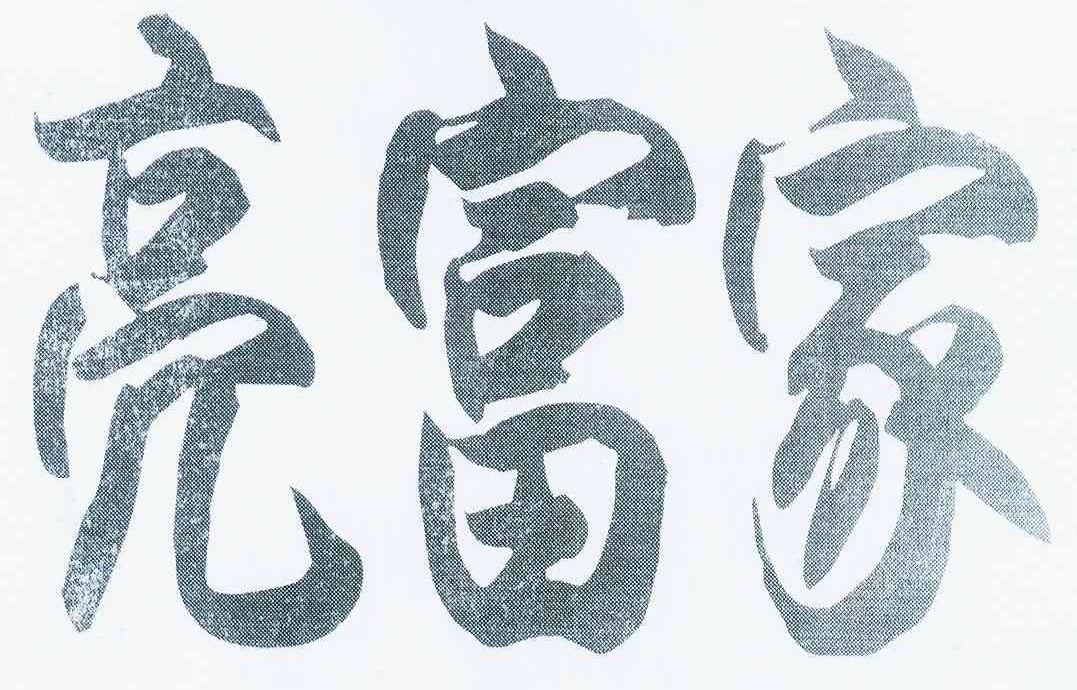 亮富家